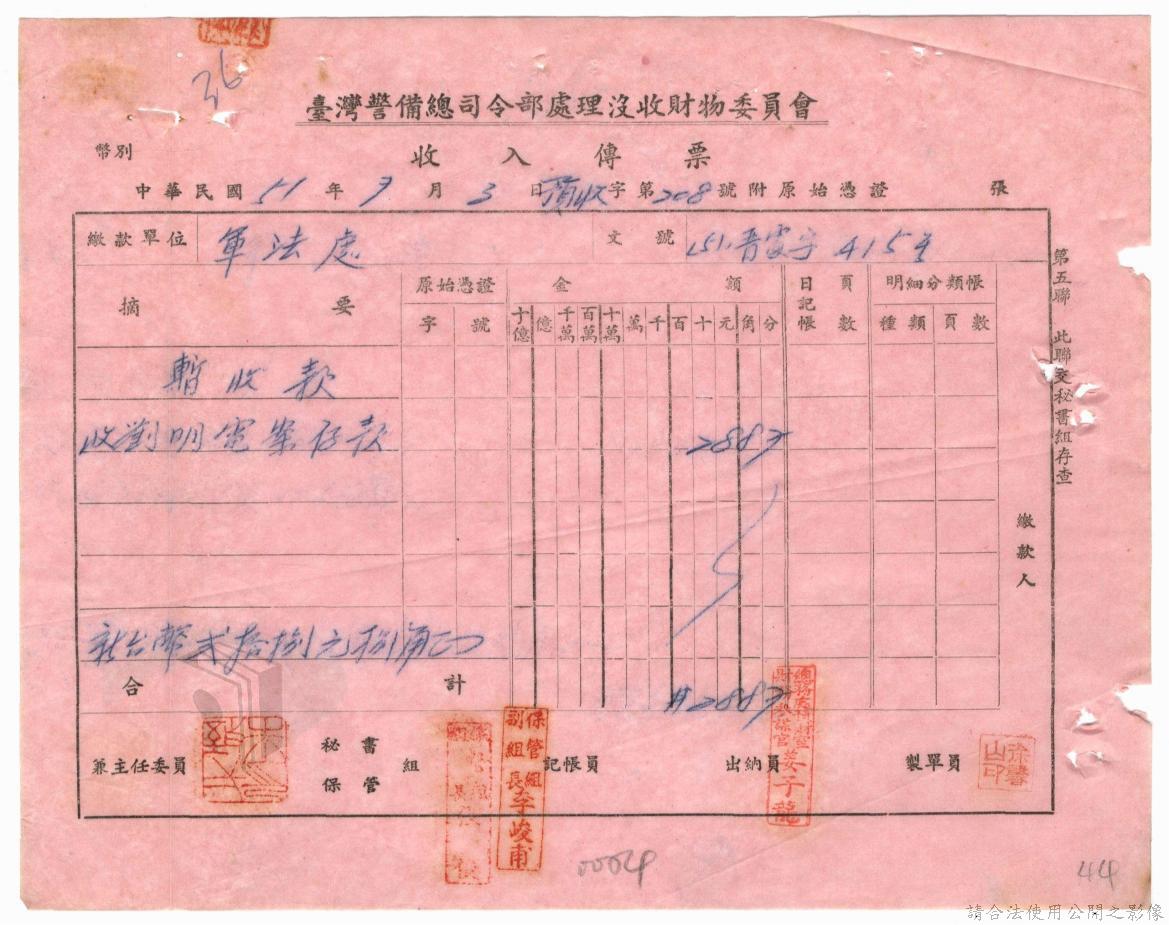 36
臺灣警備總司令部處理沒收財物委員會
幣別
收入傳票
中華民國 51 年 9 月 3 日 預收 字第 208 號附原始憑證 張
繳款單位 軍法處 文號 (51)晋字 415
摘要 原始憑證 金額 日記帳 頁數 明細分類帳
字 號 十億 億 千萬 百萬 十萬 萬 千 百 十 元 角 分 種類 頁數
暫收款
收劉明 案存款 2882
新台幣貳拾捌元捌角
合計 #2882
兼主任委員 秘書 保管 組 記帳員 出納員 製單員
保管組
副組長李峻甫
姜子龍
徐馨山印
繳款人
第五聯 此聯交秘書組存查
0004
44
請合法使用公開之影像